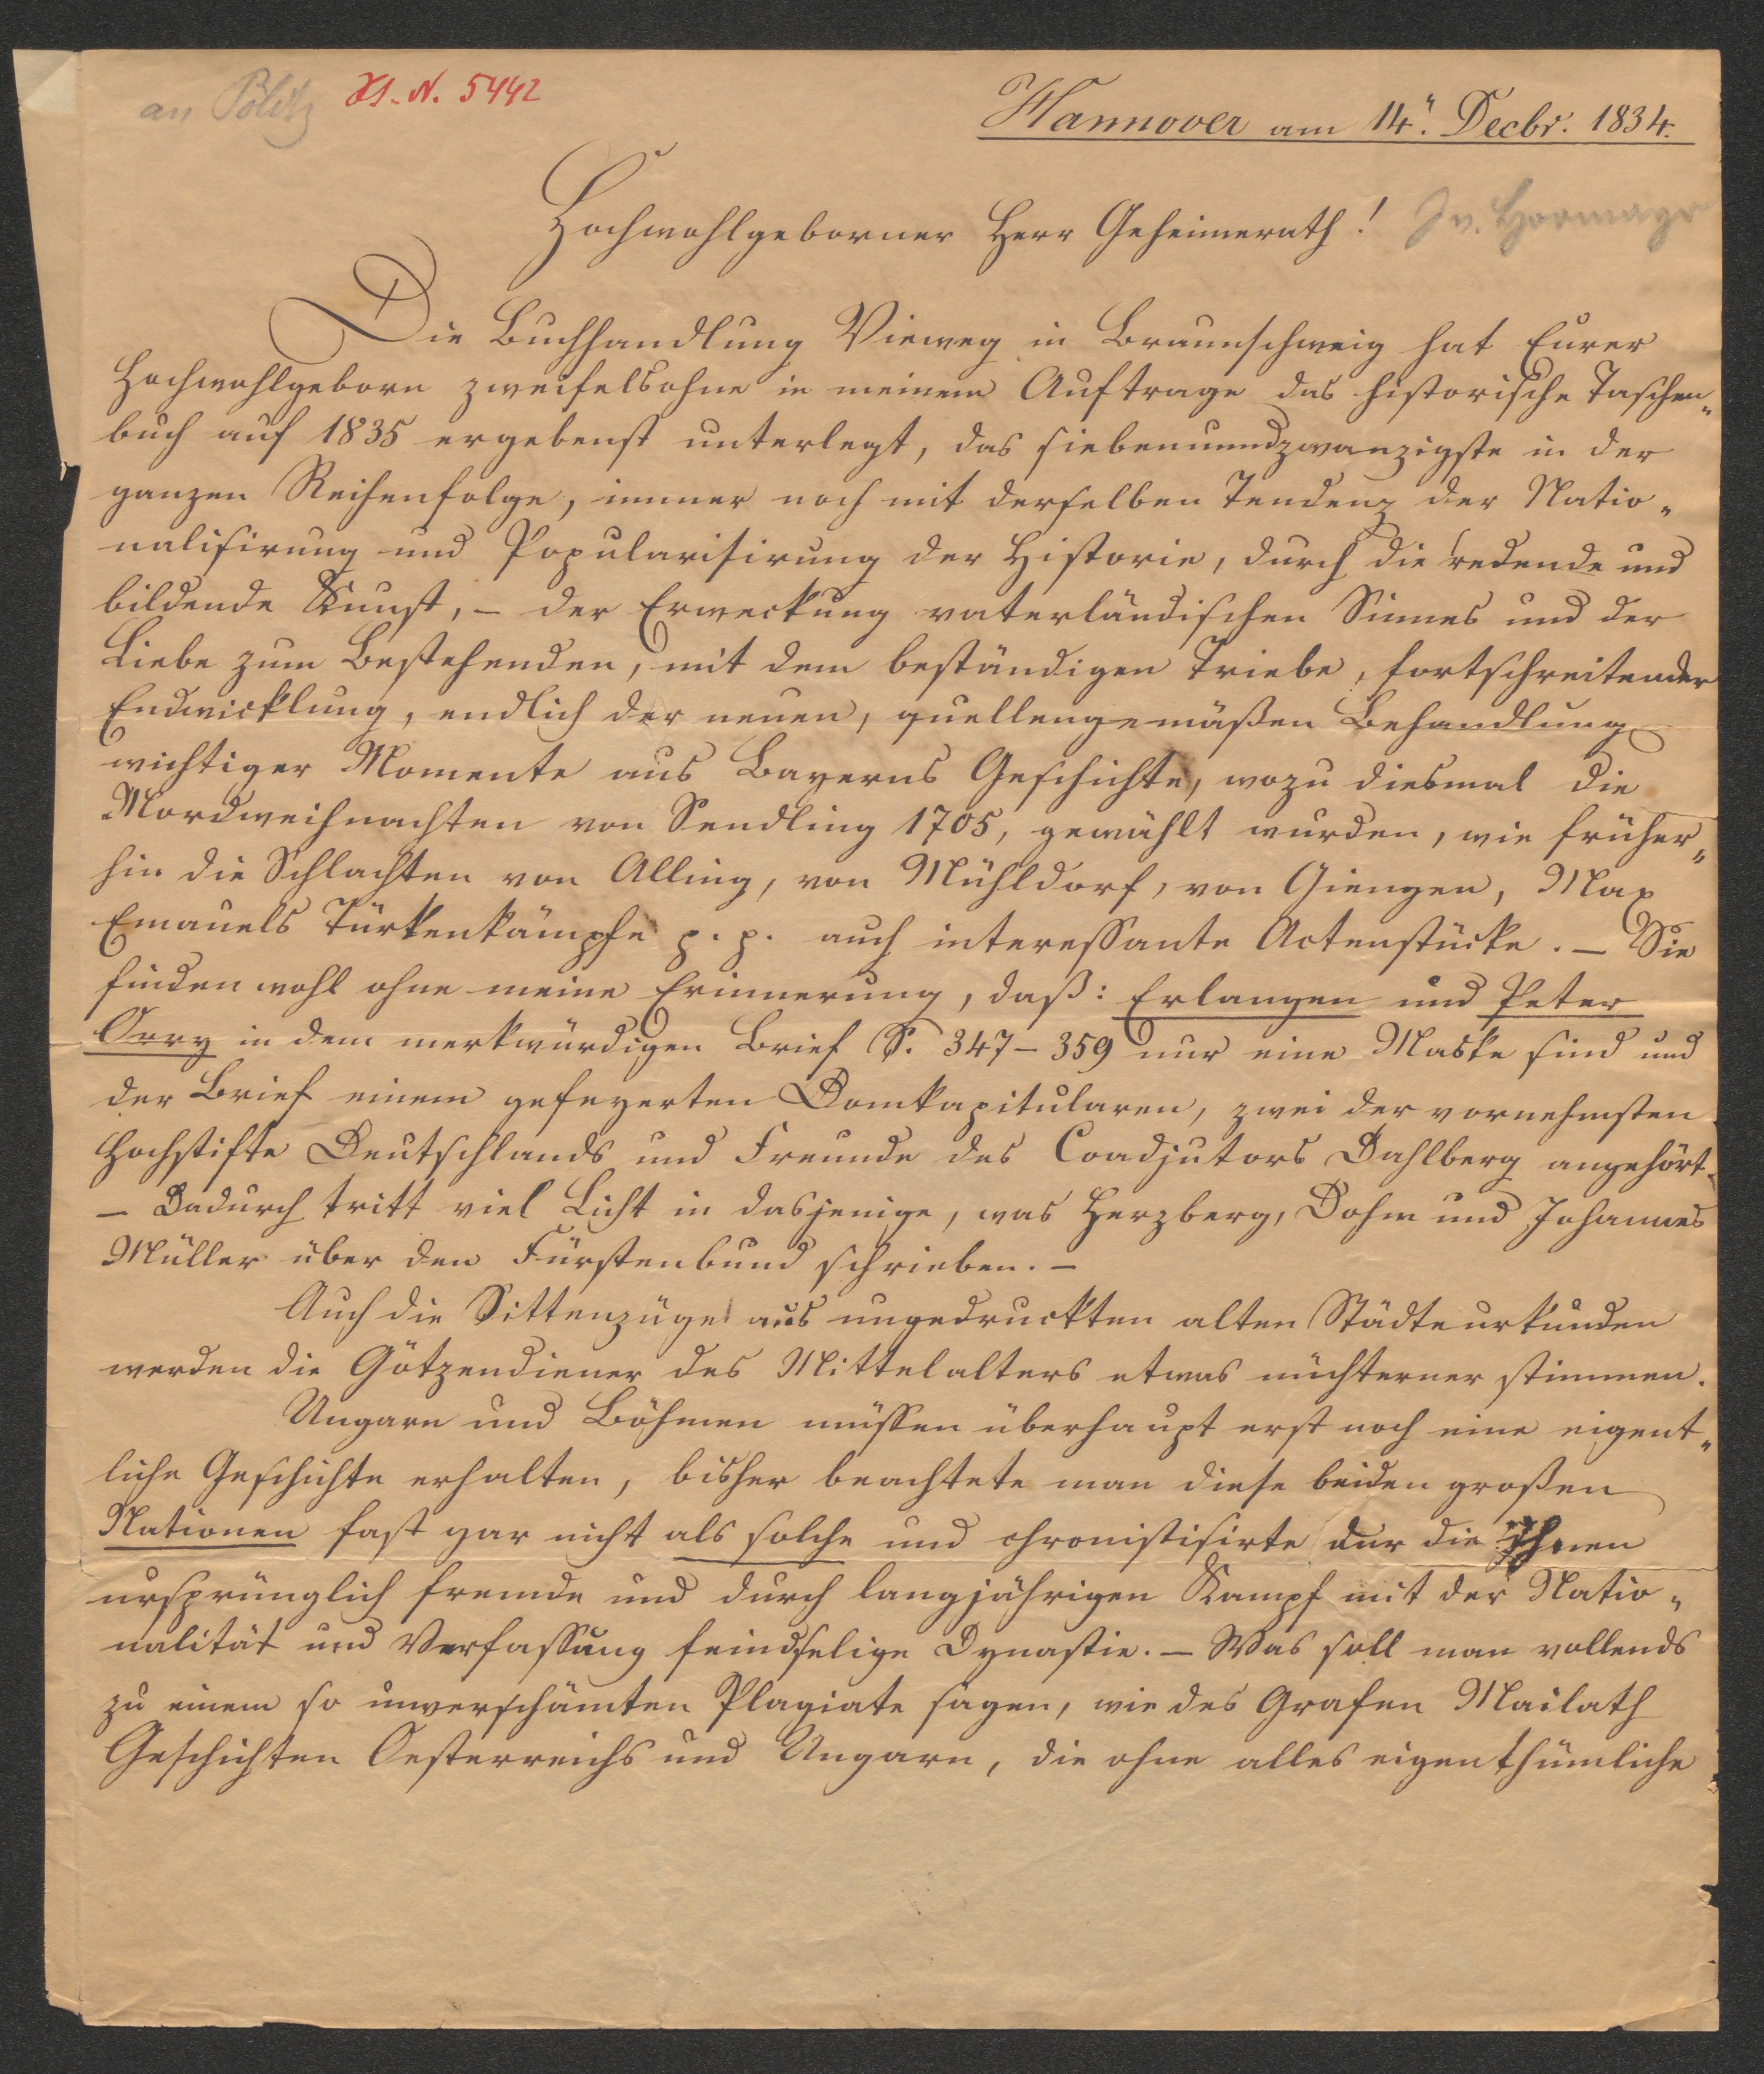 an Pölitz
Hs. N. 5442
Hannover am 14". Decbr. 1834.
Hochwohlgeborner Herr Geheimerath!
J v. Hormayr
Die Buchhandlung Vieweg in Braunschweig hat Eurer
Hochwohlgeborn zweifelsohne in meinem Auftrage das historische Taschen„
buch auf 1835 ergebenst unterlegt, das siebenundzwanzigste in der
ganzen Reihenfolge, immer noch mit derselben Tendenz der Natio„
nalisirung und Popularisirung der Historie, durch die redende und
bildende Kunst, – der Erweckung vaterländischen Sinnes und der
Liebe zum Bestehenden, mit dem beständigen Triebe, fortschreitender
Endwicklung, endlich der neuen, quellengemäßen Behandlung
wichtiger Momente aus Bayerns Geschichte, wozu diesmal die
Mordweihnachten von Sendling 1705, gewählt wurden, wie früher„
hin die Schlachten von Alling, von Mühldorf, von Giengen, Max
Emanuels Türkenkämpfe p. p. auch interessante Actenstücke. – Sie
finden wohl ohne meine Erinnerung, daß: Erlangen und Peter
Orry in dem merkwürdigen Brief S. 347–359 nur eine Maske sind und
der Brief einem gefeyerten Domkapitularen, zwei der vornehmsten
Hochstifte Deutschlands und Freunde des Coadjutors Dahlberg angehört.
– Dadurch tritt viel Licht in dasjenige, was Herzberg, Dohm und Johannes
Müller über den Fürstenbund schrieben. –
Auch die Sittenzüge aus ungedruckten alten Städteurkunden
werden die Götzendiener des Mittelalters etwas nüchterner stimmen.
Ungarn und Böhmen müssen überhaupt erst noch eine eigent„
liche Geschichte erhalten, bisher beachtete man diese beiden großen
Nationen fast gar nicht als solche und chronistisirte nur die Ihnen
ursprünglich fremde und durch langjährigen Kampf mit der Natio„
nalität und Verfassung feindselige Dynastie. – Was soll man vollends
zu einem so unverschämten Plagiate sagen, wie des Grafen Mailath
Geschichten Oesterreichs und Ungarn, die ohne alles eigenthümliche